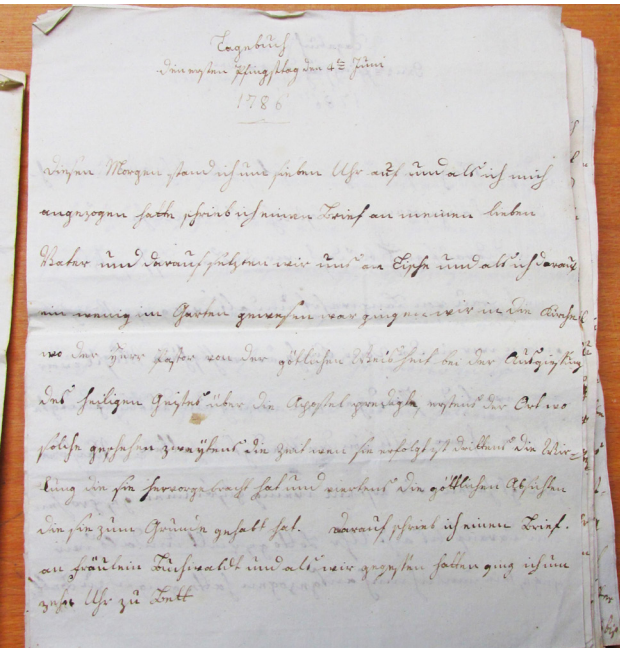 Tagebuch
den ersten Pfingsttag den 4ten Juni
1786
diesen Morgen stand ich um sieben Uhr auf und als ich mich
angezogen hatte schrieb ich einen Brief an meinen lieben
Vater und darauf setzten wir uns an Tische und als ich darauf
ein wenig im Garten gewesen war gingen wir in die Kirche
wo der Herr Pastor von der göttlichen Weisheit bei der Ausgießung
des heiligen Geistes über die Apostel predigte, erstens der Ort wo
solche geschehen zweytens die Zeit wen sie erfolgt ist drittens die Wir=
kung die sie hervorgebracht hat und viertens die göttlichen Absichten
die sie zum Grunde gehabt hat. darauf schrieb ich einen Brief.
an Fräulein Buchwaldt und als wir gegessen hatten ging ich um
zehn Uhr zu Bett